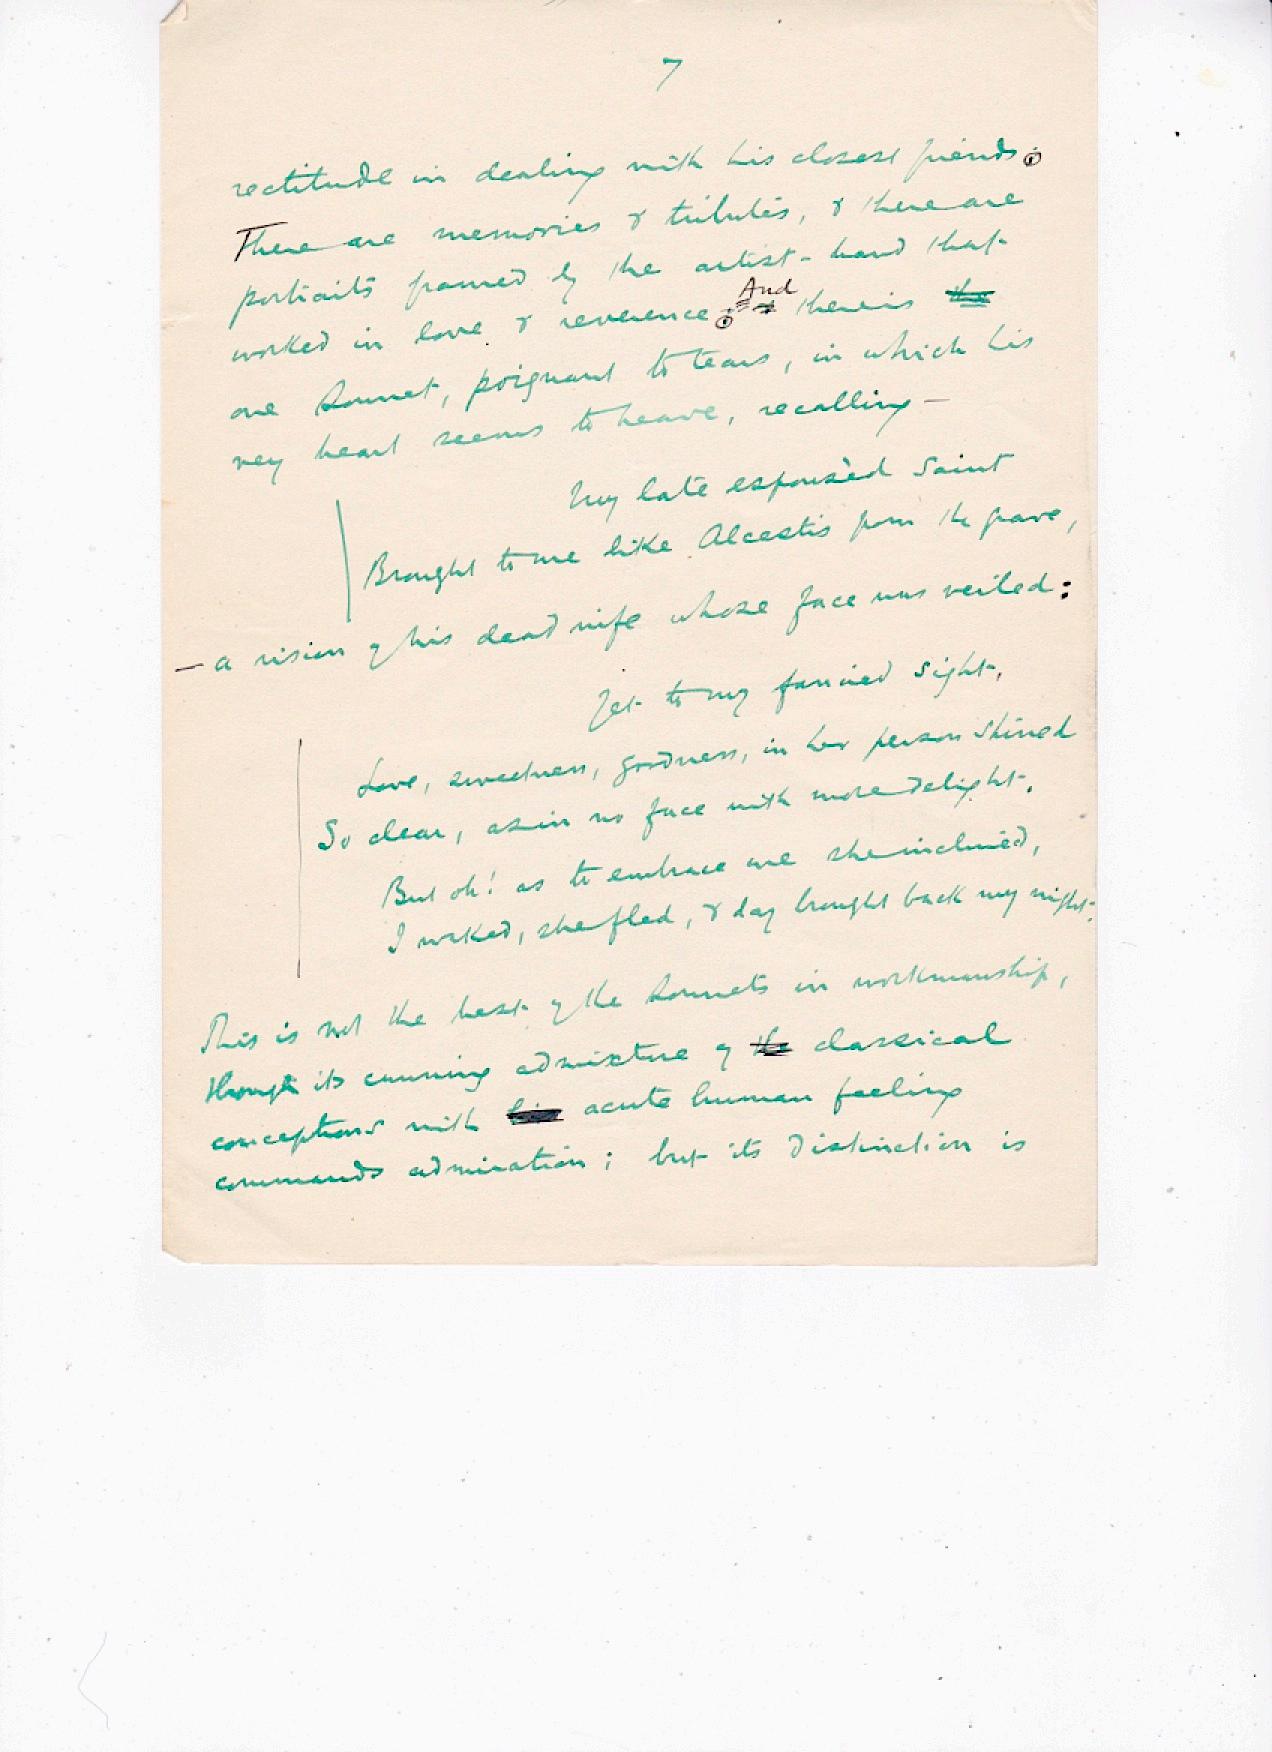 7
rectitude in dealing with his closest friends.
There are memories & tributes, & there are
portraits framed by the artist-hand that
worked in love & reverence. And there is the
one Sonnet, poignant to tears, in which his
very heart seems to heave, recalling —
My late espousèd Saint
Brought to me like Alcestis from the grave,
— a vision of his dead wife whose face was veiled:
Yet to my fancied sight,
Love, sweetness, goodness, in her person shined
So clear, as in no face with more delight.
But oh! as to embrace me she inclined,
I waked, she fled, & day brought back my night.
This is not the best of the Sonnets in workmanship,
though its cunning admixture of the classical
conceptions with his acute human feeling
commands admiration; but its distinction is